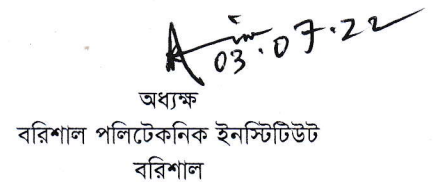 03.07.22
অধ্যক্ষ
বরিশাল পলিটেকনিক ইনস্টিটিউট
বরিশাল